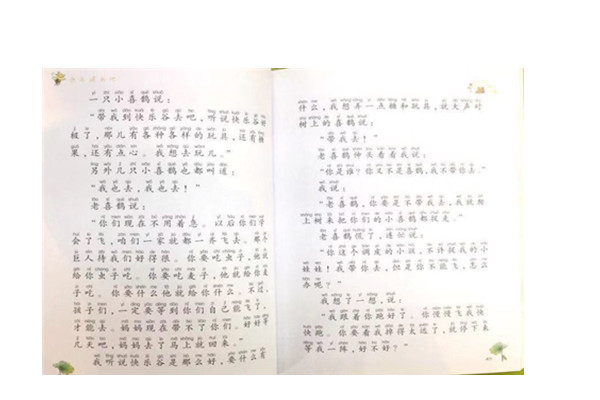 一只小喜鹊说：
“带我到快乐谷去吧，听说快乐谷好
极了，那儿有各种各样的玩具，还有糖
果，还有点心。我想去玩儿。”
另外几只小喜鹊也都叫道：
“我也去，我也去！”
老喜鹊说：
“你们现在不用着急。以后你们学
会了飞，咱们一家就都一齐飞去。那个
巨人待我们好得很。你要吃虫子，他就
给你虫子吃。你要吃麦子，他就给你麦
子吃。你要什么他就给你什么。不过，
孩子们，一定要等到你们自己能飞了，
才能去。妈妈现在带不了你们。好好等
几天吧，妈妈去了马上就回来。”
我听说快乐谷是那么好，要什么有
什么，我想弄一点糖和玩具，就大声对
树上的喜鹊说：
“带我去！”
老喜鹊伸头看看我说：
“你是谁？你又不是喜鹊，我不带你去。”
我说：
“老喜鹊，你要是不带我去，我就爬
上树来把你们的小喜鹊都捉走。”
老喜鹊慌了，连忙说：
“你这个调皮的小孩，不许捉我的小
娃娃！我带你去，但是你不能飞，怎么
办呢？”
我想了一想，说：
“我跟着你跑好了。你慢慢飞我快
快跑。你要是看我掉得太远了，就停下来
等我一阵，好不好？”